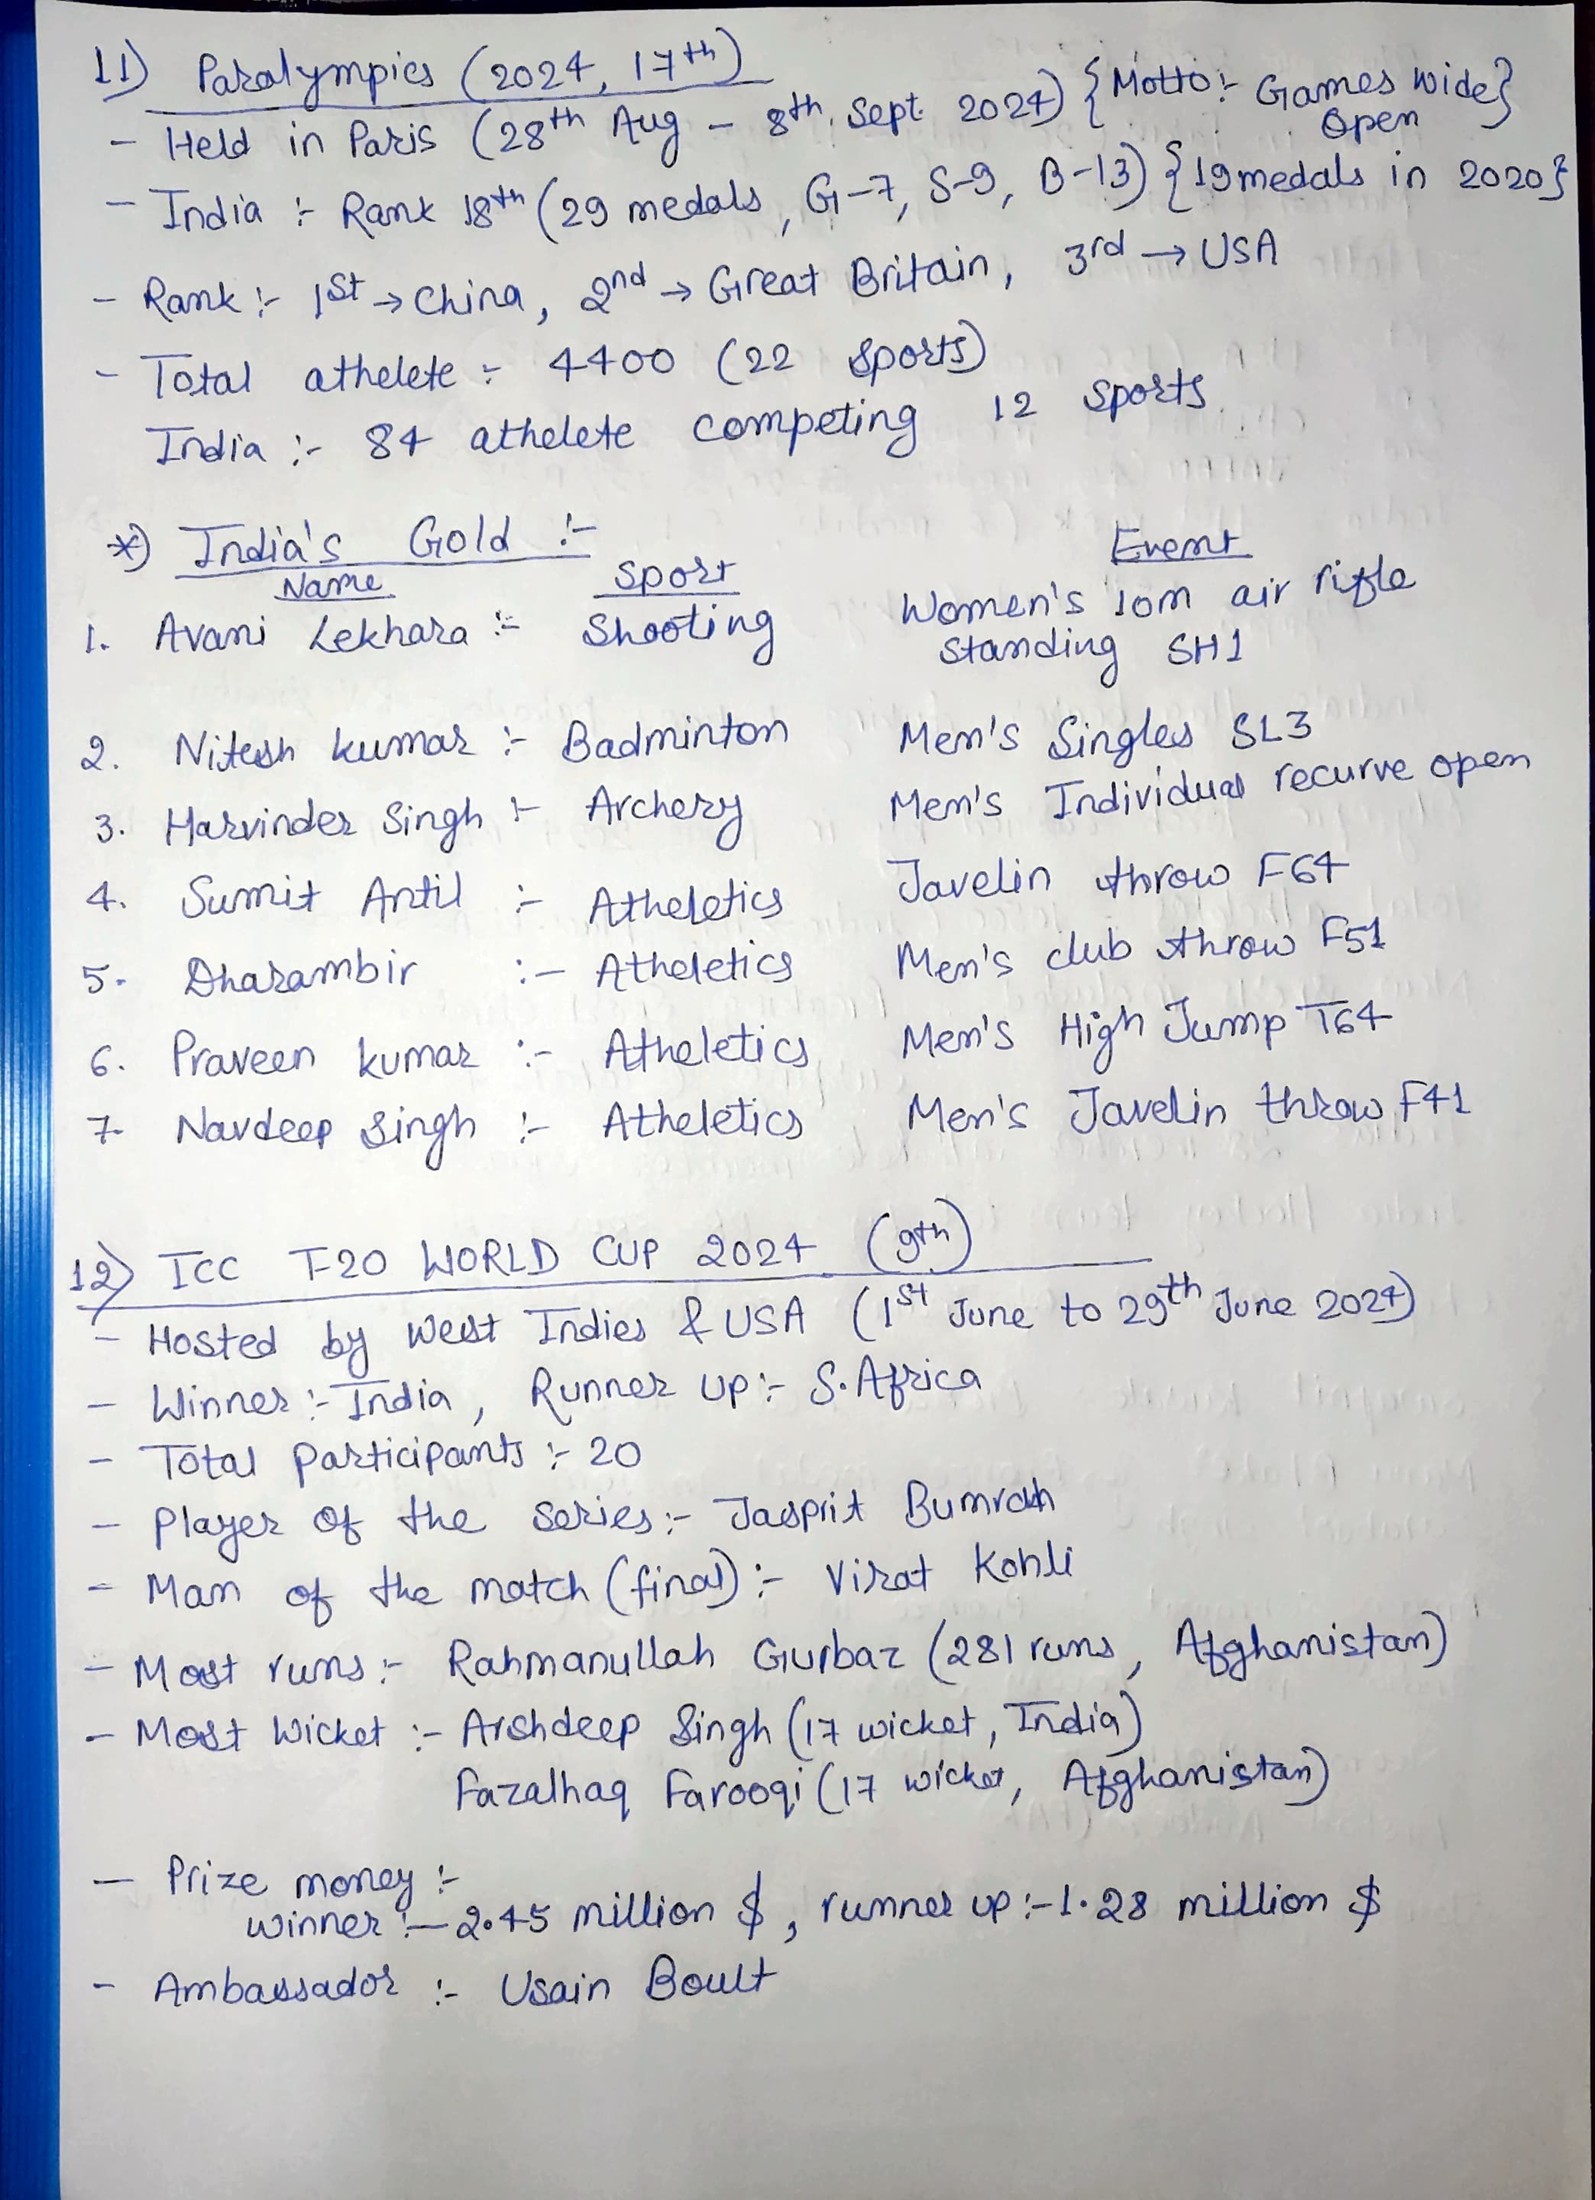 11) Paralympics (2024, 17th)
- Held in Paris (28th Aug - 8th Sept. 2024) {Motto:- Games wide Open}
- India :- Rank 18th (29 medals, G-7, S-9, B-13) {19 medals in 2020}
- Rank :- 1st → China, 2nd → Great Britain, 3rd → USA
- Total athelete :- 4400 (22 sports)
India :- 84 athelete competing 12 sports
*) India's Gold :-
Name Sport Event
1. Avani Lekhara :- Shooting Women's 10m air rifle
standing SH1
2. Nitesh kumar :- Badminton Men's Singles SL3
3. Harvinder Singh :- Archery Men's Individual recurve open
4. Sumit Antil :- Atheletics Javelin throw F64
5. Dharambir :- Atheletics Men's club throw F51
6. Praveen kumar :- Atheletics Men's High Jump T64
7. Navdeep Singh :- Atheletics Men's Javelin throw F41
12) ICC T-20 WORLD CUP 2024 (9th)
- Hosted by West Indies & USA (1st June to 29th June 2024)
- Winner :- India, Runner up :- S. Africa
- Total participants :- 20
- Player of the series :- Jasprit Bumrah
- Man of the match (final) :- Virat Kohli
- Most runs :- Rahmanullah Gurbaz (281 runs, Afghanistan)
- Most Wicket :- Arshdeep Singh (17 wicket, India)
Fazalhaq Farooqi (17 wicket, Afghanistan)
- Prize money :-
winner :- 2.45 million $, runner up :- 1.28 million $
- Ambassador :- Usain Boult